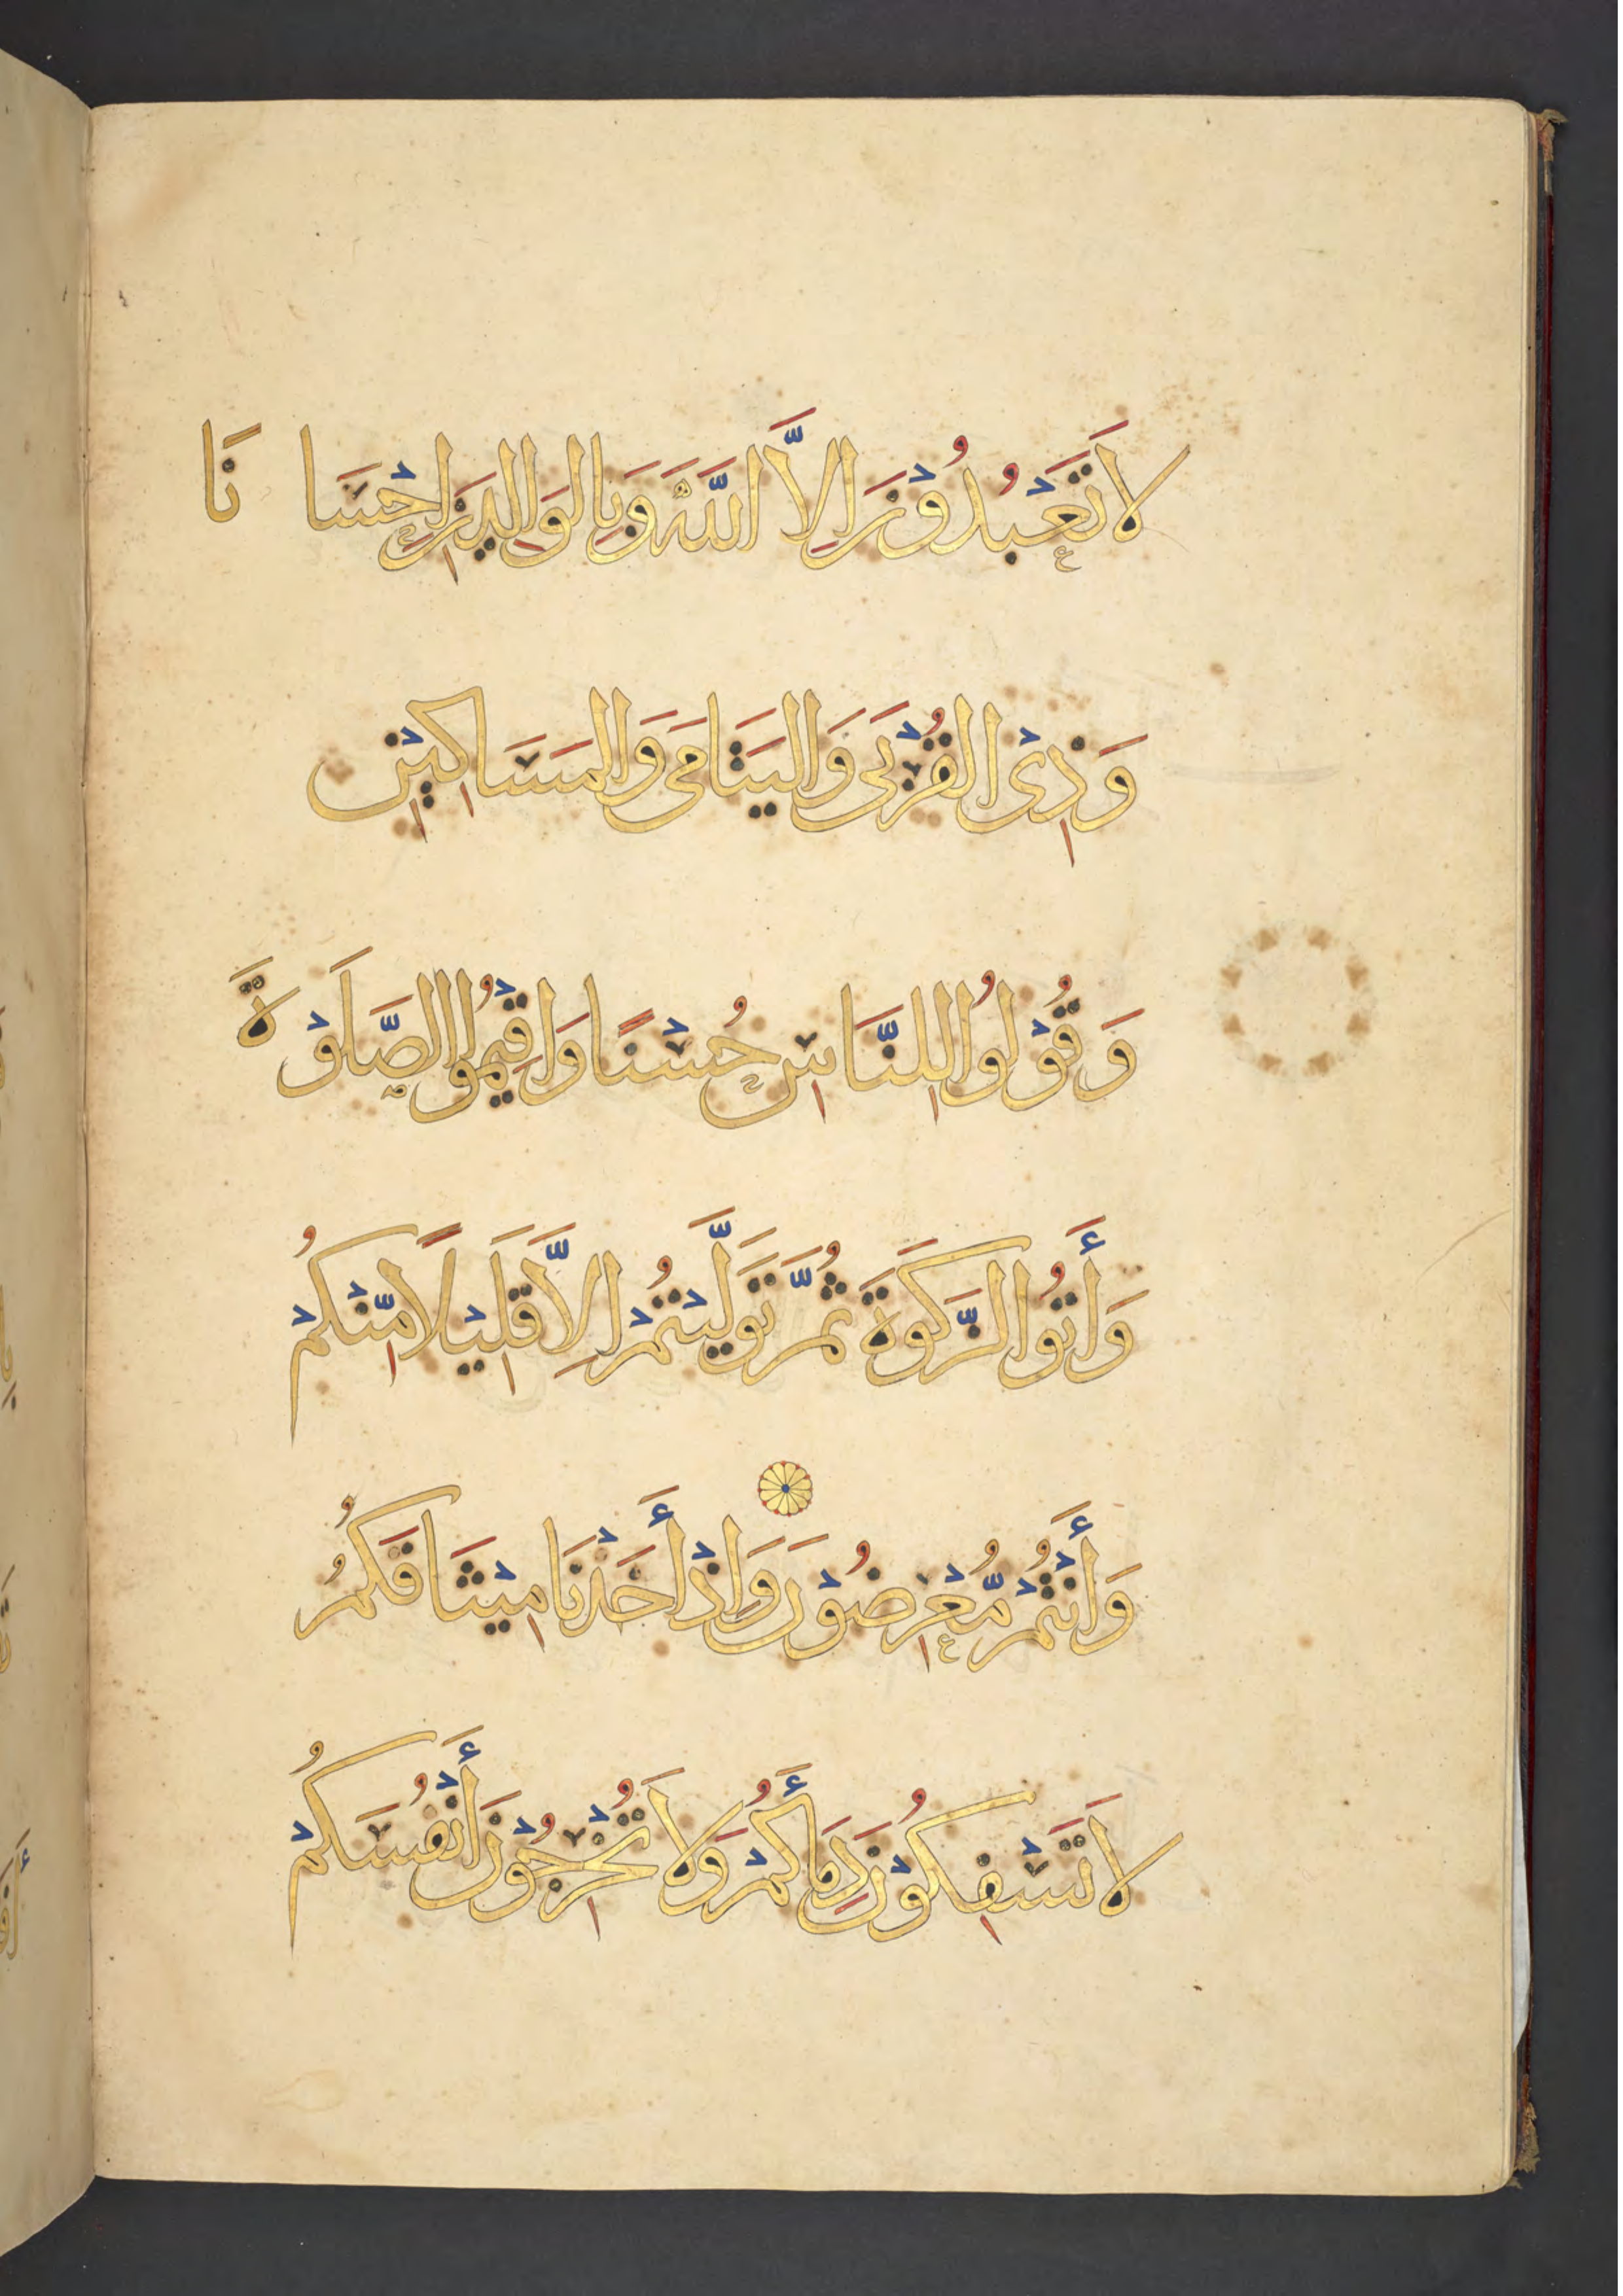 لَا تَعْبُدُوْنَ اِلَّا اللَّهَ وَبِالوَالِدَيْنِ اِحْسَا نَا
وَذِىْ القُرْبَى وَاليَتَامَى وَالمَسَاكِيْنِ
وَقُوْلُوُا لِلنَّاسِ حُسْنًا وَاَقِيْمُوُا الصَّلَوْةَ
وَأَتُوُا الزَّكَوةَ ثُمَّ تَوَلَّيْتُمْ اِلَّا قَلِيْلًا مِّنْكُمْ
وَأَنْتُمْ مُّعْرِضُوْنَ وَاِذْ أَخَذْنَا مِيْثَاقَكُمُ
لَا تَسْفِكُوْنَ دِمَاَكُمْ وَلَا تُخْرِجُوْنَ أَنْفُسَكُمْ